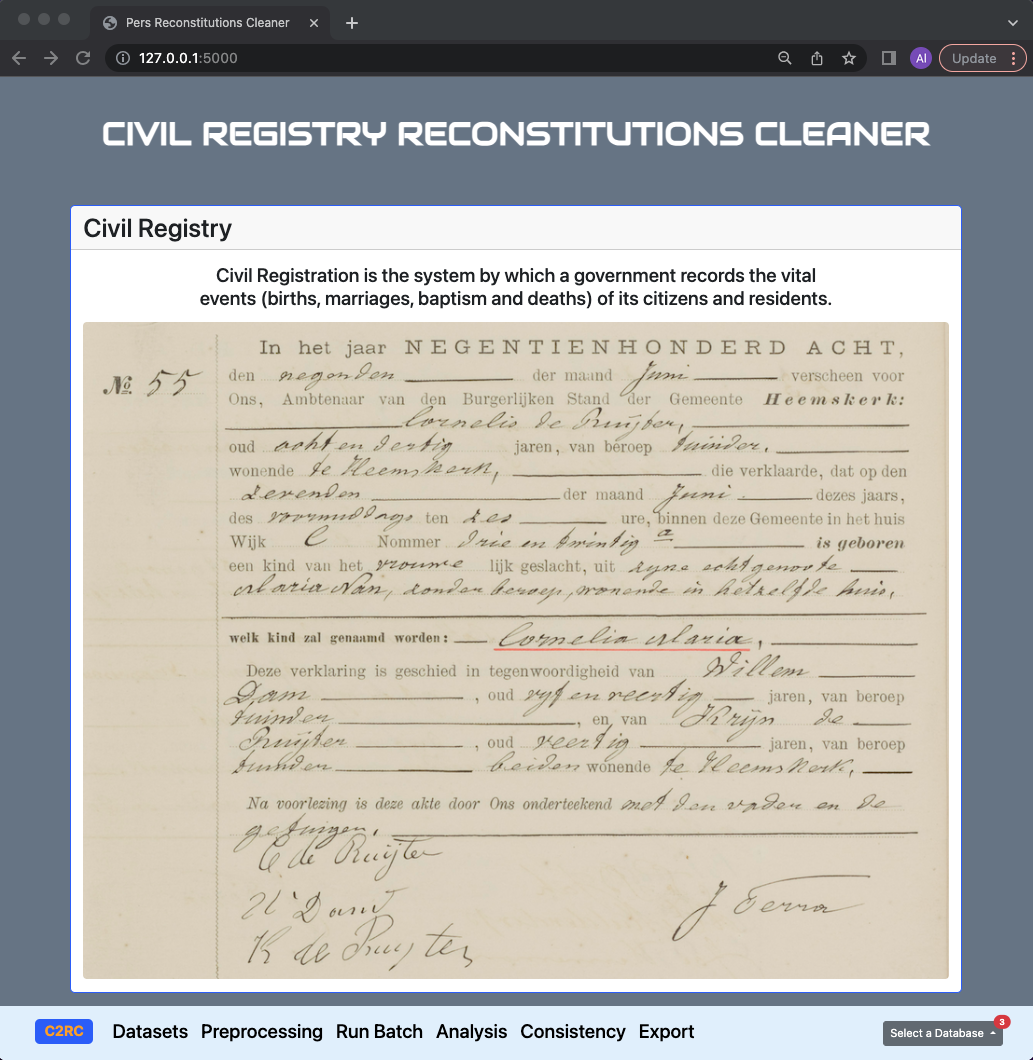 Pers Reconstitutions Cleaner
127.0.0.1:5000
AI
Update
CIVIL REGISTRY RECONSTITUTIONS CLEANER
Civil Registry
Civil Registration is the system by which a government records the vital
events (births, marriages, baptism and deaths) of its citizens and residents.
In het jaar NEGENTIENHONDERD ACHT,
No. 55
den negenden der maand Juni verscheen voor
Ons, Ambtenaar van den Burgerlijken Stand der Gemeente Heemskerk:
Cornelis de Ruijter,
oud acht en dertig jaren, van beroep tuinder,
wonende te Heemskerk, die verklaarde, dat op den
zevenden der maand Juni dezes jaars,
des voormiddags ten zes ure, binnen deze Gemeente in het huis
Wijk C Nommer drie en twintig a is geboren
een kind van het vrouwe lijk geslacht, uit zijne echtgenoote
Maria Nan, zonder beroep, wonende in hetzelfde huis,
welk kind zal genaamd worden: Cornelia Maria,
Deze verklaring is geschied in tegenwoordigheid van Willem
Dam, oud vijf en veertig jaren, van beroep
tuinder, en van Krijn de
Ruijter, oud veertig jaren, van beroep
tuinder beiden wonende te Heemskerk,
Na voorlezing is deze akte door Ons onderteekend met den vader en de
getuigen.
C de Ruijter
W Dam
J
K de Ruyter
C2RC
Datasets
Preprocessing
Run Batch
Analysis
Consistency
Export
Select a Database
3